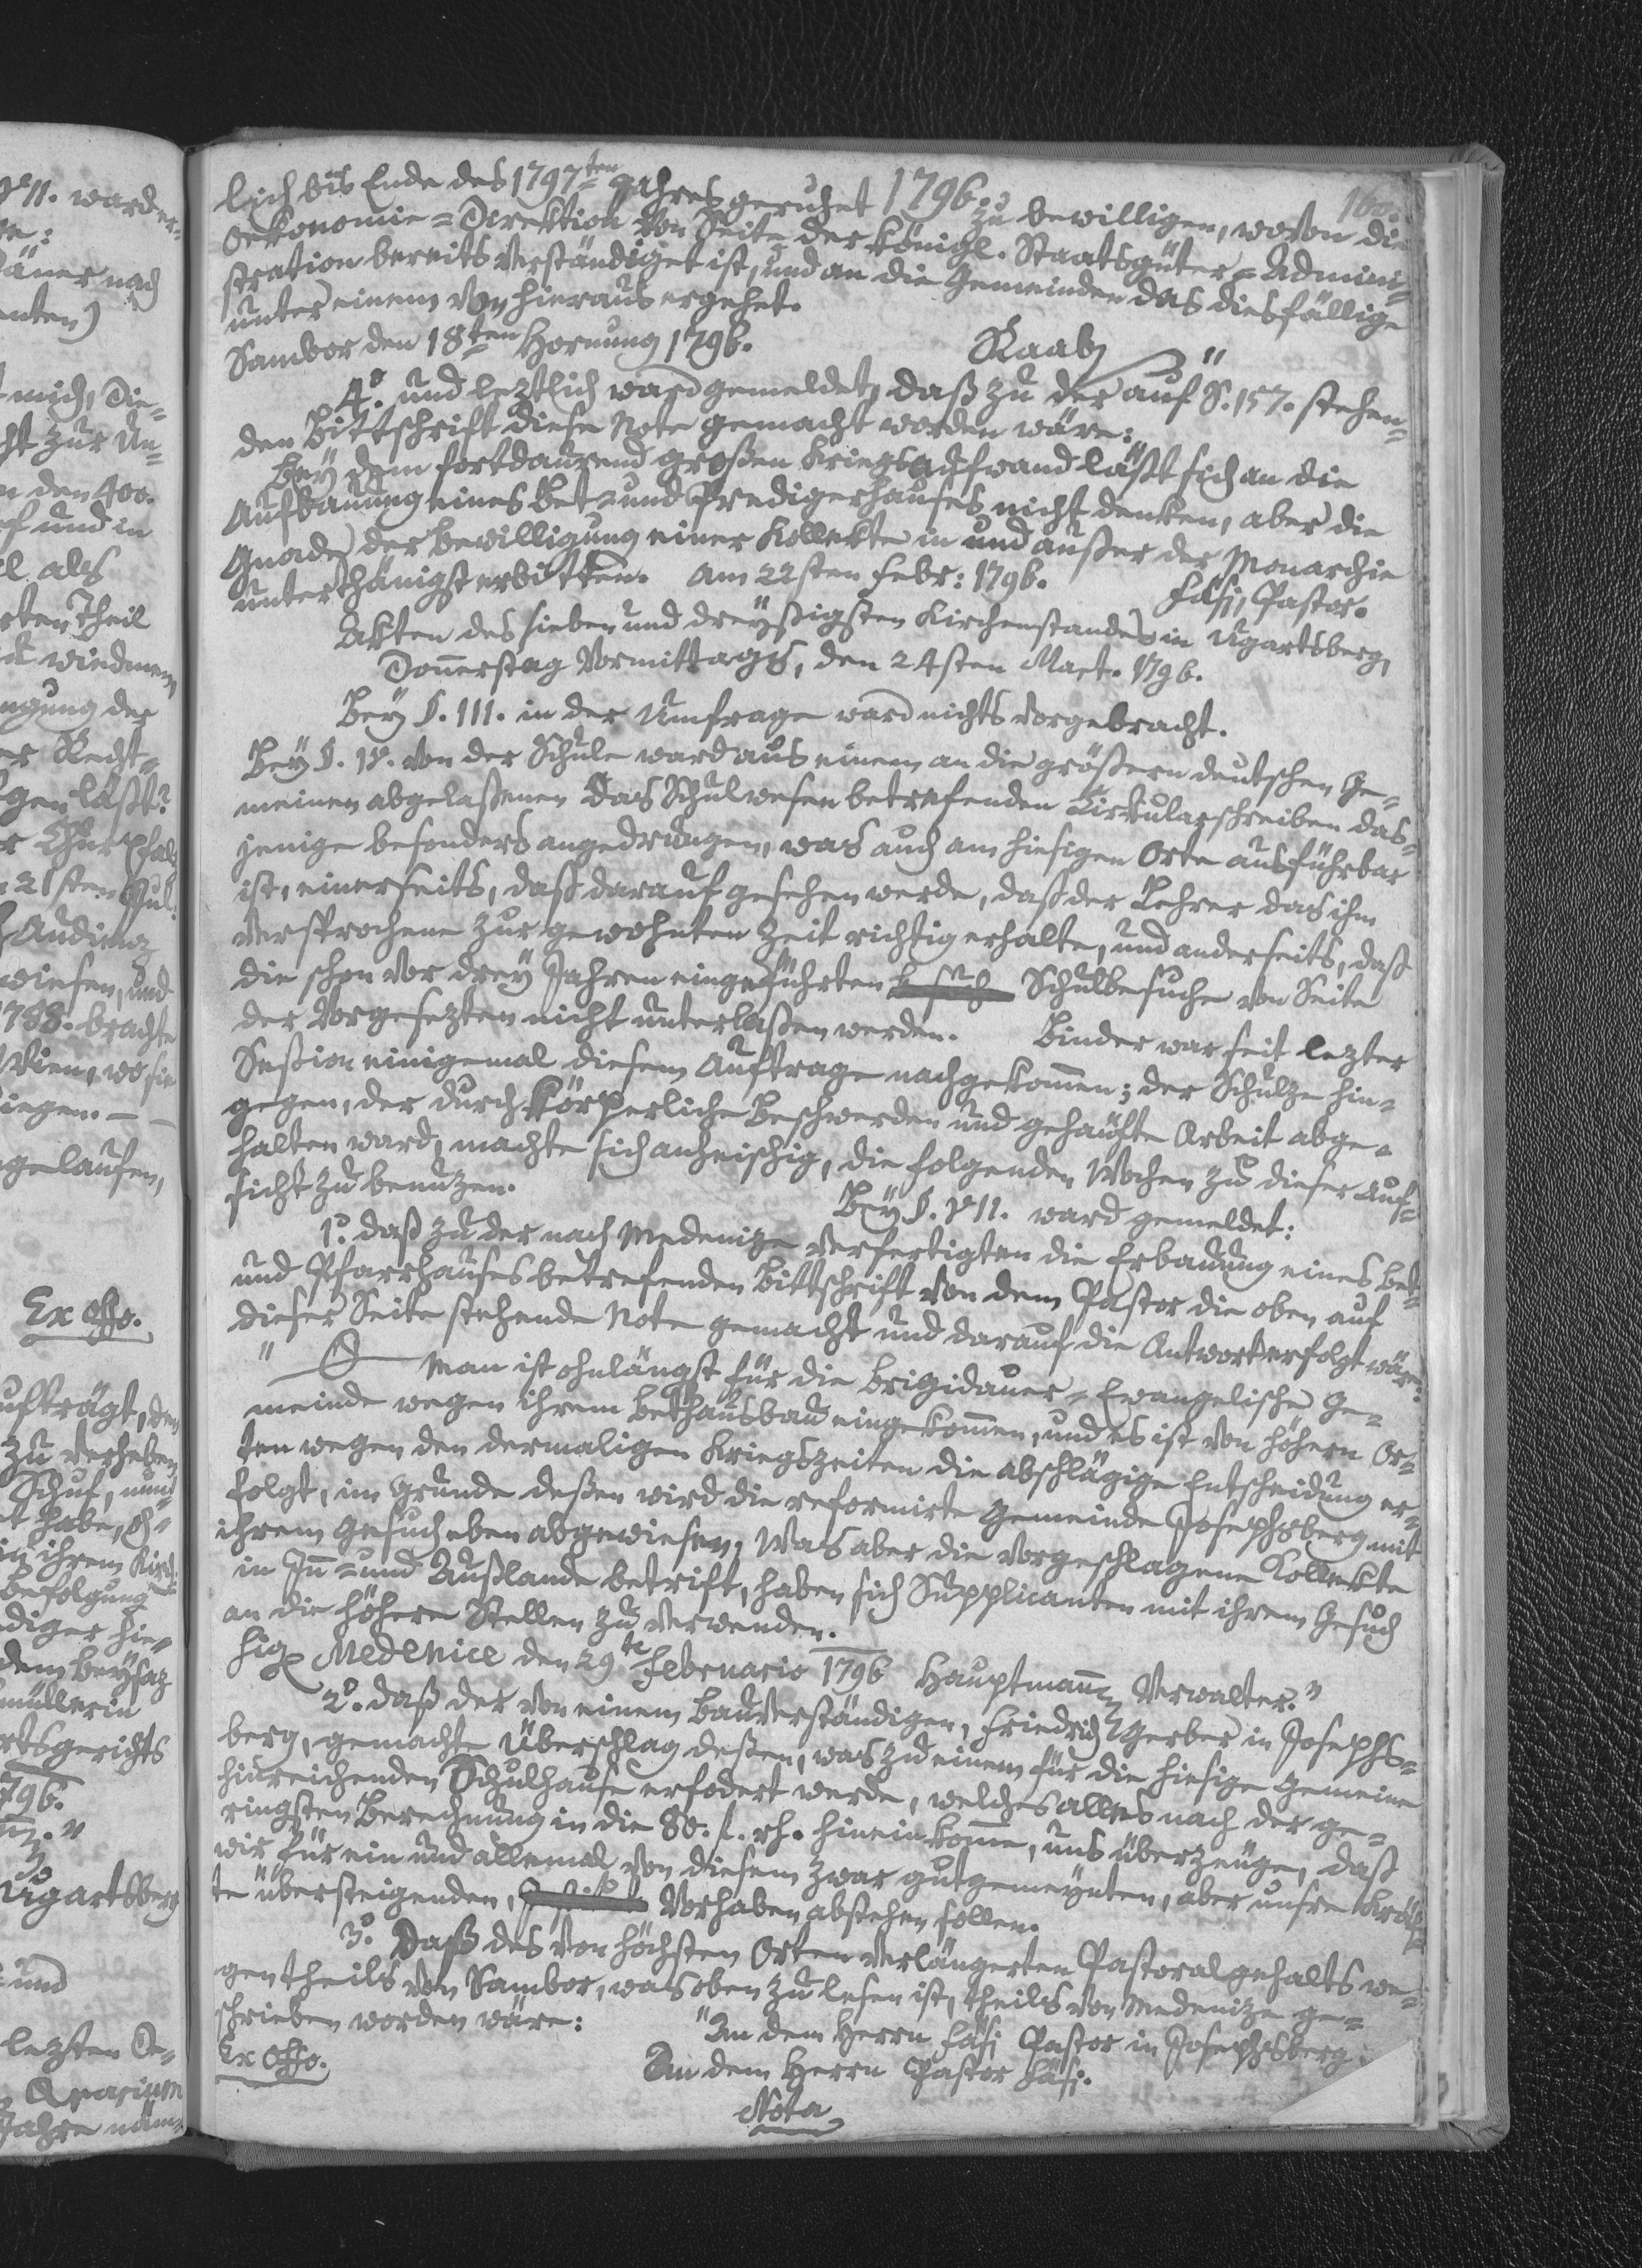 1796.
160.
lich bis Ende des 1797ten Jahres geruhet zu bewilligen, wovon die
Oekonomie=Direktion von Seite der königl. Staatsgüter=Admini-
stration bereits verständiget ist, und an die Gemeinden das diesfällige
unter einem von hieraus ergehet.
Sambor den 18ten Hornung 1796.
Raab "
4o. und leztlich ward gemeldet, daß zu der auf S. 157. stehen-
den Bittschrift diese Note gemacht worden wäre:
Bey dem fortdaurend großen Kriegsaufwand läßt sich an die
Aufbauung eines Bet= und Predigerhauses nicht denken, aber die
Gnade der Bewilligung einer Kollekte in und außer der Monarchie
unterthänigst erbitten. Am 22sten Febr: 1796.
Fäsi, Pastor.
Akten des sieben und dreyßigsten Kirchenstandes in Ugartsberg,
Donnerstag Vormittags, den 24sten Mart. 1796.
Bey §. III. in der Umfrage ward nichts vorgebracht.
Bey §. IV. von der Schule ward aus einem an die größern deutschen Ge-
meinen abgelaßenen das Schulwesen betrefenden Cirkularschreiben das-
jenige besonders angedrungen, was auch am hiesigen Orte ausführbar
ist, einerseits, daß darauf gesehen werde, daß der Lehrer das ihm
versprochene zur gewohnten Zeit richtig erhalte, und anderseits, daß
die schon vor drey Jahren eingeführten Schulbesuche von Seite
der Vorgesezten nicht unterlaßen werden. Binder war seit lezter
Seßion einigemal diesem Auftrage nachgekommen; der Schulze hin-
gegen, der durch körperliche Beschwerden und gehäufte Arbeit abge-
halten ward, machte sich anheischig, die folgenden Wochen zu dieser Auf-
sicht zu benutzen.
Bey §. VII. ward gemeldet:
1o. daß zu der nach Medenize verfertigten die Erbauung eines Bet-
und Pfarrhauses betrefenden Bittschrift von dem Pastor die oben auf
dieser Seite stehende Note gemacht und darauf die Antwort erfolgt wäre:
" Man ist ohnlängst für die Brigidauer=Evangelische Ge-
meinde wegen ihrem Bethausbau eingekommen, und es ist von höhern Or-
ten wegen den dermaligen Kriegszeiten die abschlägige Entscheidung er-
folgt, im Grunde deßen wird die reformirte Gemeinde Josephsberg mit
ihrem Gesuch eben abgewiesen, Was aber die vorgeschlagene Collekte
in In= und Außlande betrift, haben sich Supplicanten mit ihrem Gesuch
an die höhere Stellen zu verwenden.
Sig Medenice den 29te Februario 1796 Hauptmann Verwalter."
2o. daß der von einem Bauverständigen, Friedrich Gerber in Josephs-
berg, gemachte Überschlag deßen, was zu einem für die hiesige Gemeine
hinreichenden Schulhause erfodert werde, welches alles nach der ge-
ringsten Berechnung in die 80. f. rh. hineinkomme, uns überzeuge, daß
wir für ein und allemal von diesem zwar gutgemeynten, aber unsre Kräf-
te übersteigenden, Vorhaben abstehen sollen.
3o. Daß des von höchsten Orten verlängerten Pastoralgehalts we-
gen theils von Sambor, was oben zu lesen ist, theils von Medenize ge-
schrieben worden wäre: "An dem Herrn Fäsi Pastor in Josephsberg.
Ex Offo. An dem Herrn Pastor Fäsi.
Nota